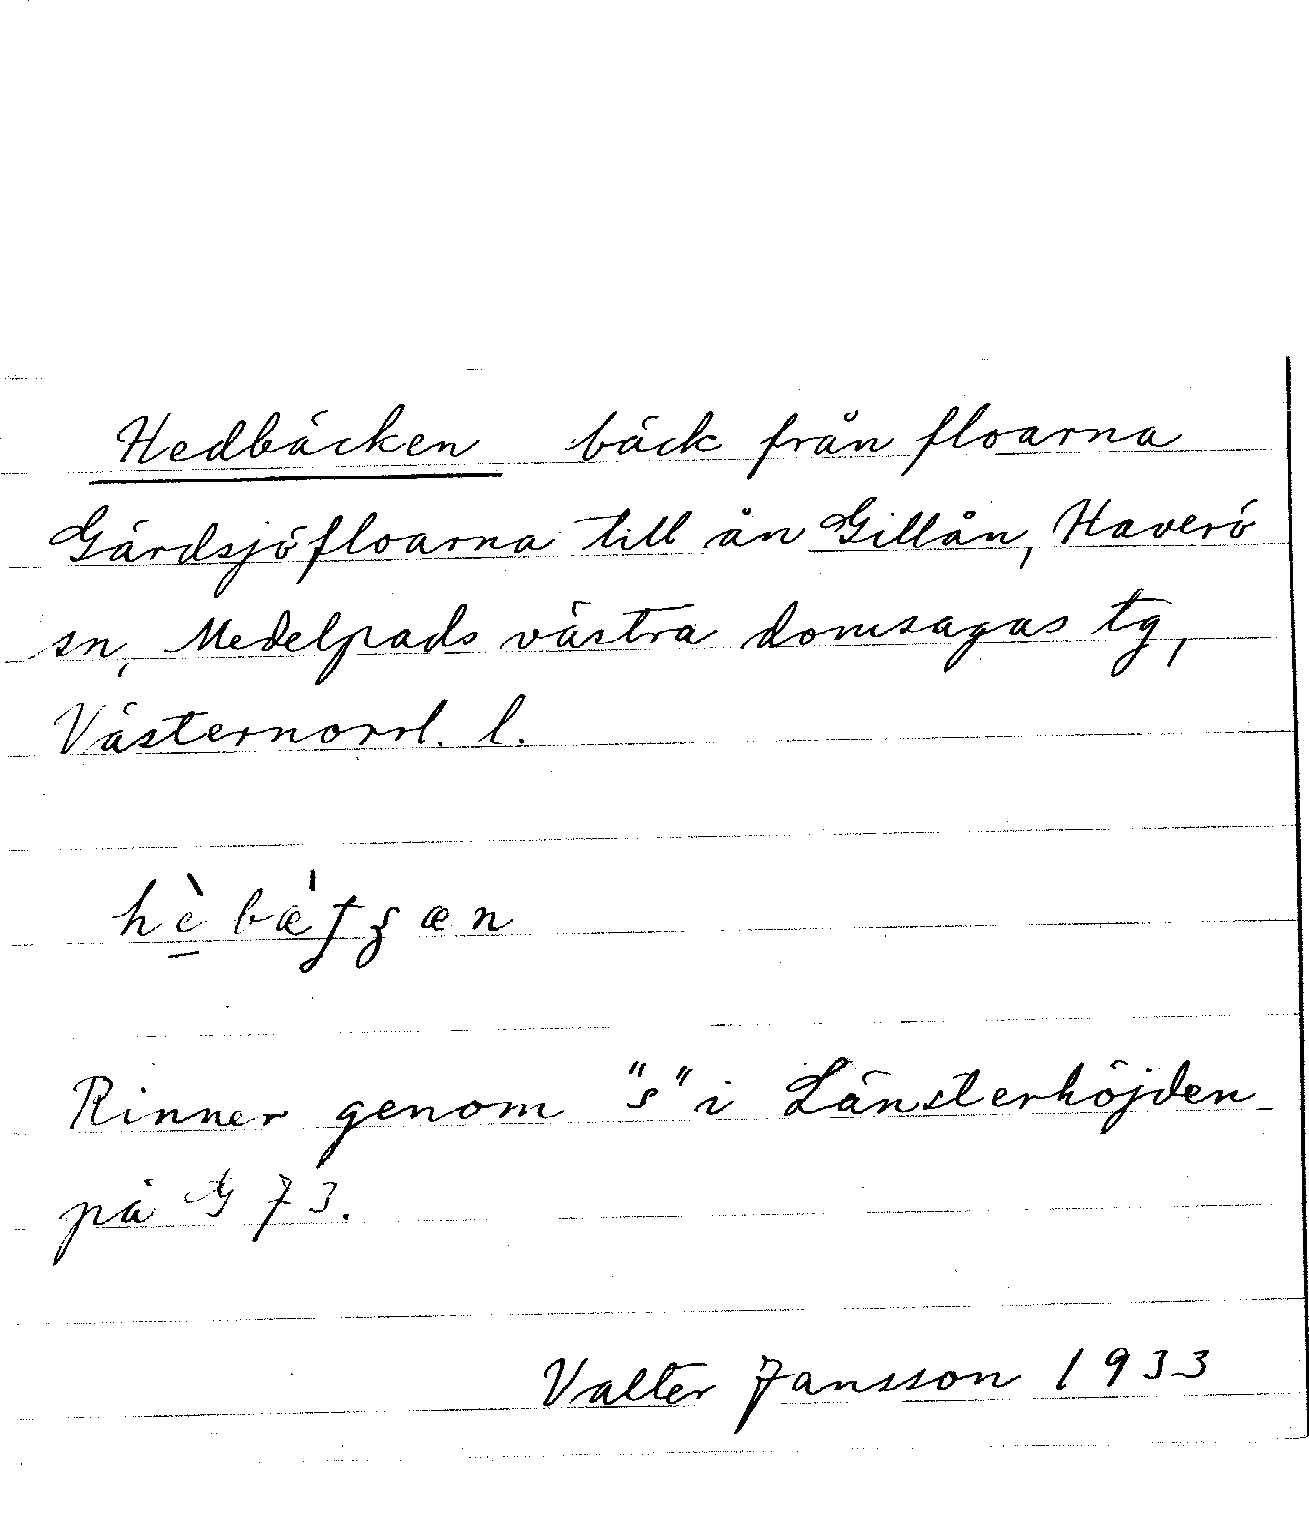 Hedbäcken bäck från floarna
Gärdsjöfloarna till ån Gillån, Haverö
sn, Medelpads västra domsagas tg,
Västernorrl. l.
Rinner genom "s" i Länsterhöjden
på G 73.
Valter Jansson 1933